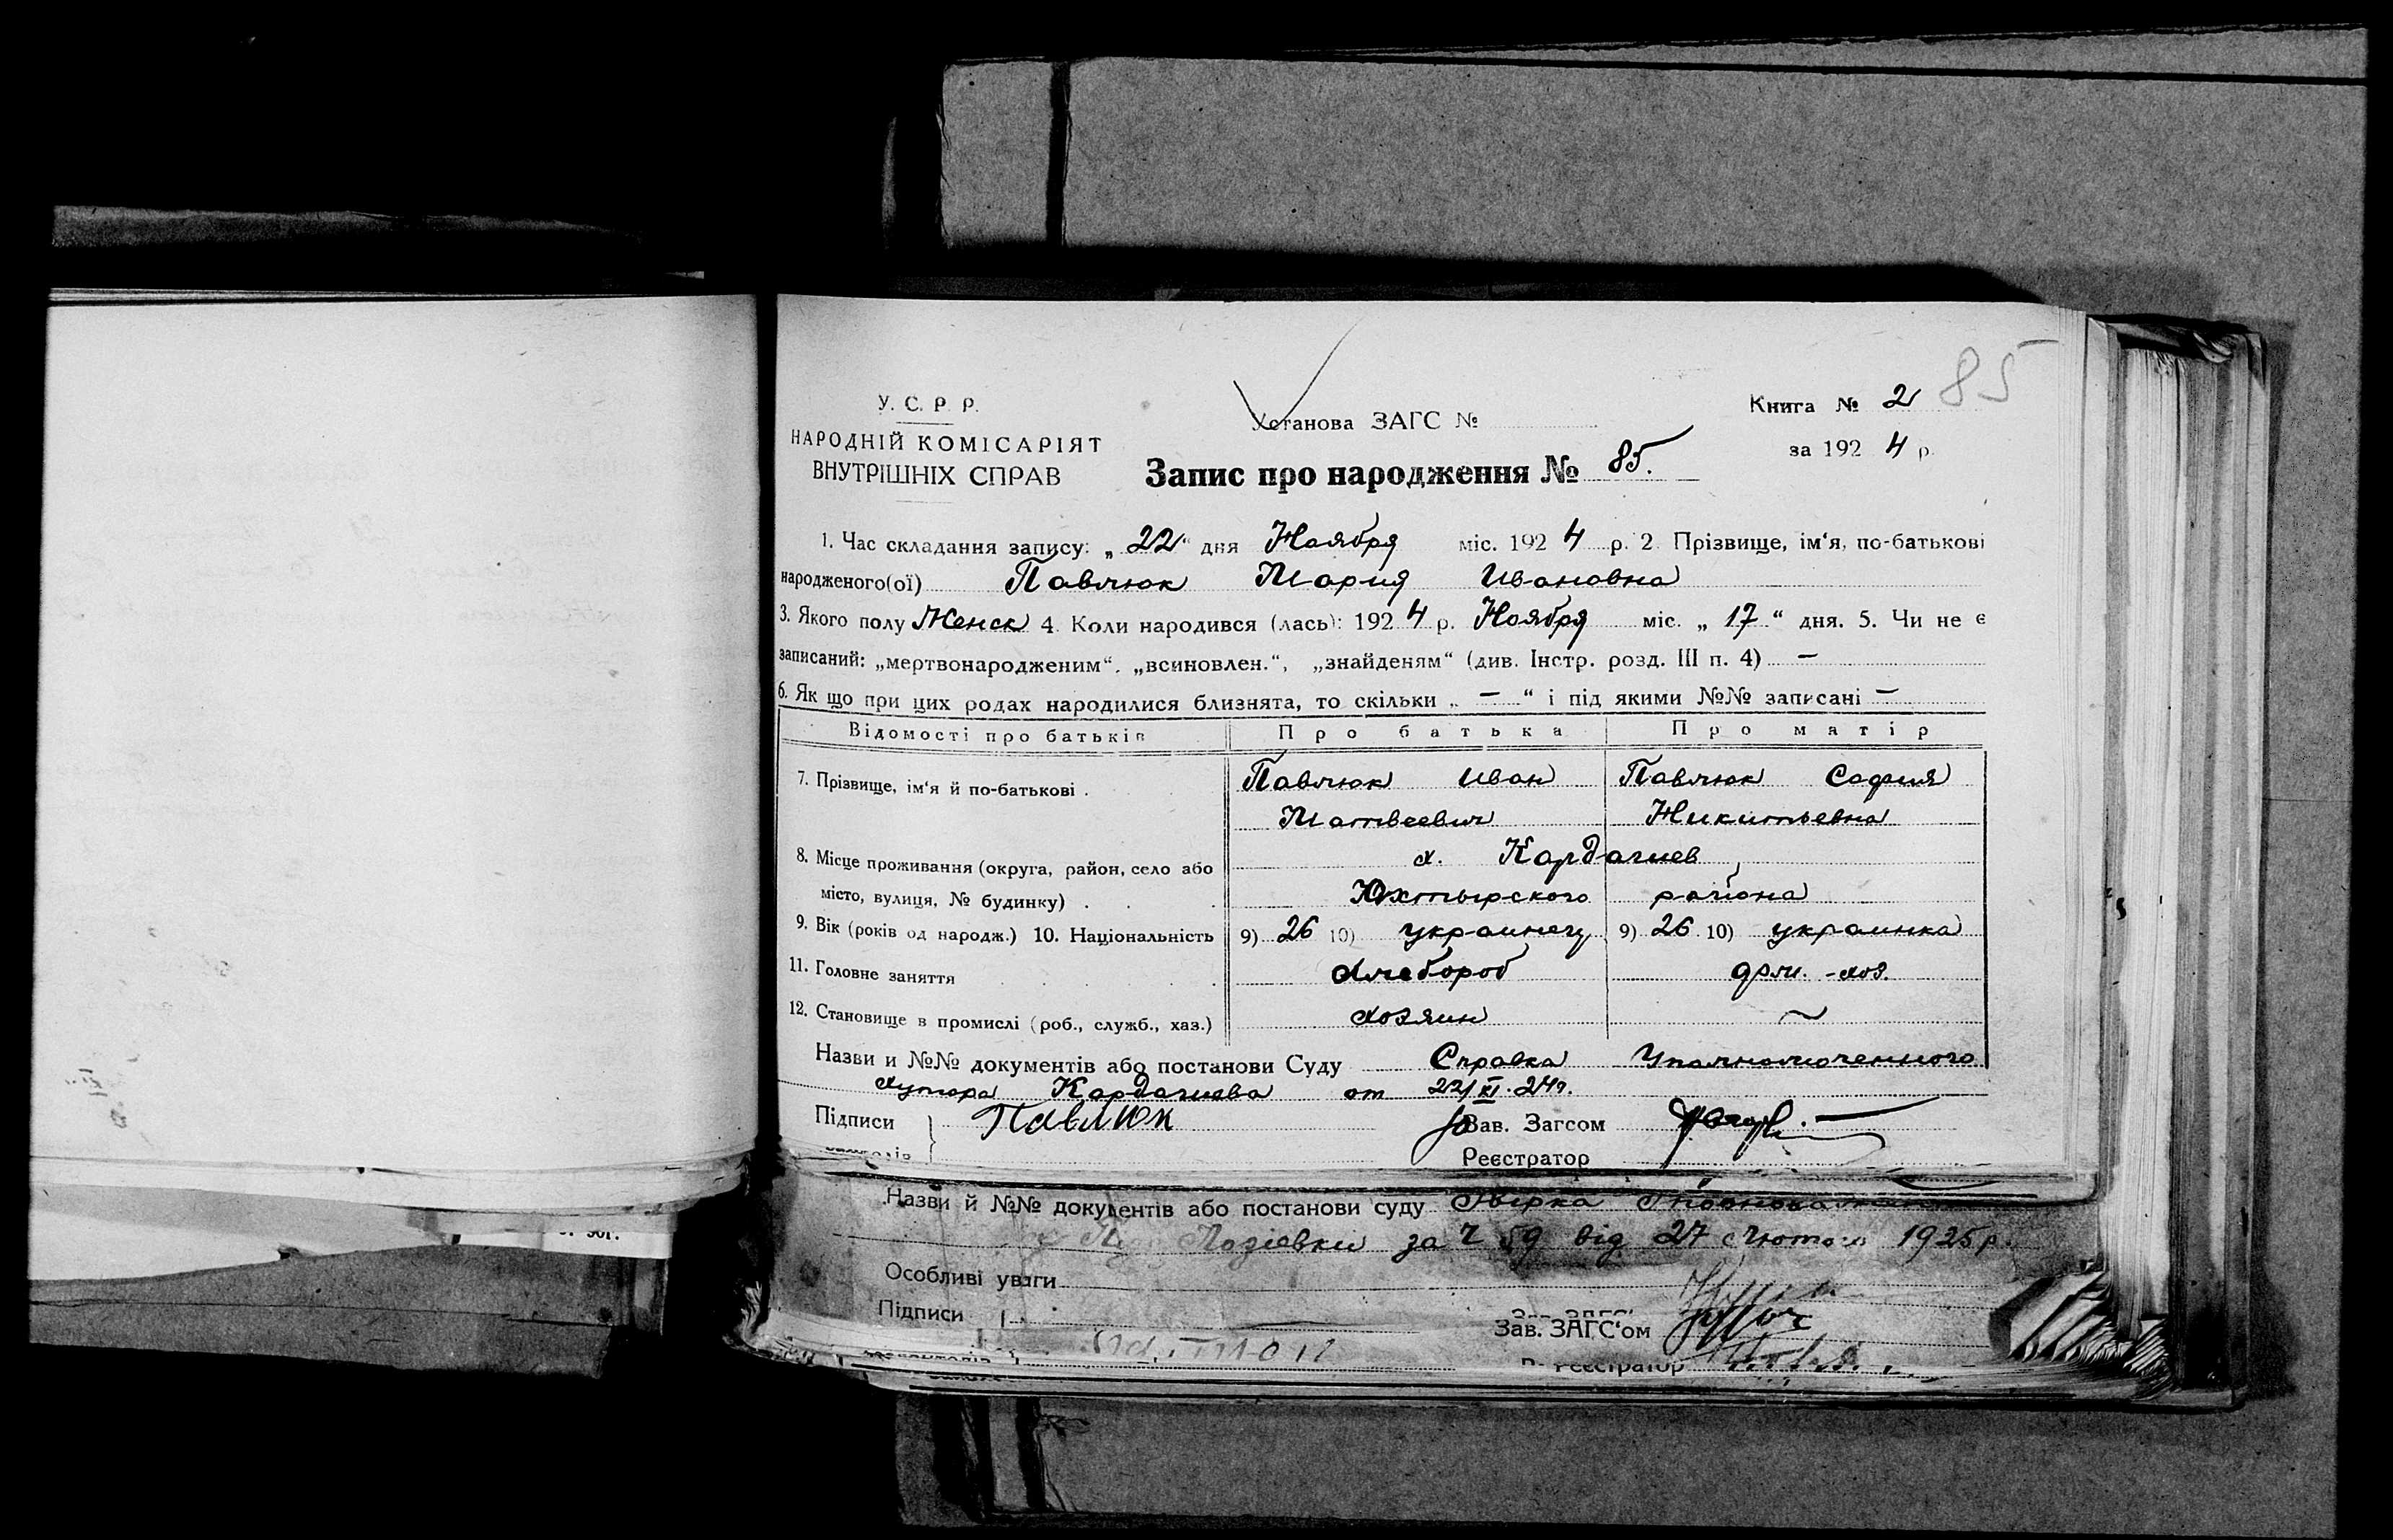 85
У. С. Р. Р.
Установа ЗАГС №
Книга № 2
НАРОДНІЙ КОМІСАРІЯТ
ВНУТРІШНІХ СПРАВ
за 1924 р.
Запис про народження № 85.
1. Час складання запису: „22“ дня Ноября міс. 1924 р. 2. Прізвище, ім'я, по-батькові
народженого(ої) Павлюк Мария Ивановна
3. Якого полу Женск 4. Коли народився (лась): 1924 р. Ноября міс. „17“ дня. 5. Чи не є
записаний: „мертвонародженим“, „всиновлен.“, „знайденям“ (див. Інстр. розд. III п. 4) —
6. Як що при цих родах народилися близнята, то скільки „—“ і під якими №№ записані —
Відомості про батьків Про батька Про матір
7. Прізвище, ім'я й по-батькові . Павлюк Иван Павлюк София
Матвеевич Никитьевна
8. Місце проживання (округа, район, село або х. Кардашев
місто, вулиця, № будинку) . . Юхтырского района
9. Вік (років од народж.) 10. Національність 9) 26 10) украинец 9) 26 10) украинка
11. Головне заняття Хлебороб дом. -хоз.
12. Становище в промислі (роб., служб., хаз.) хозяин ~
Назви и №№ документів або постанови Суду Справка Уполномоченного
хутора Кардашева от 22/XI. 24 г.
Підписи Павлюк Зав. Загсом
Реєстратор
Назви й №№ документів або постанови суду
за Ч 59 від 27 Лютого 1925 р.
Особливі уваги
Підписи
Зав. ЗАГС'ом
Реєстратор